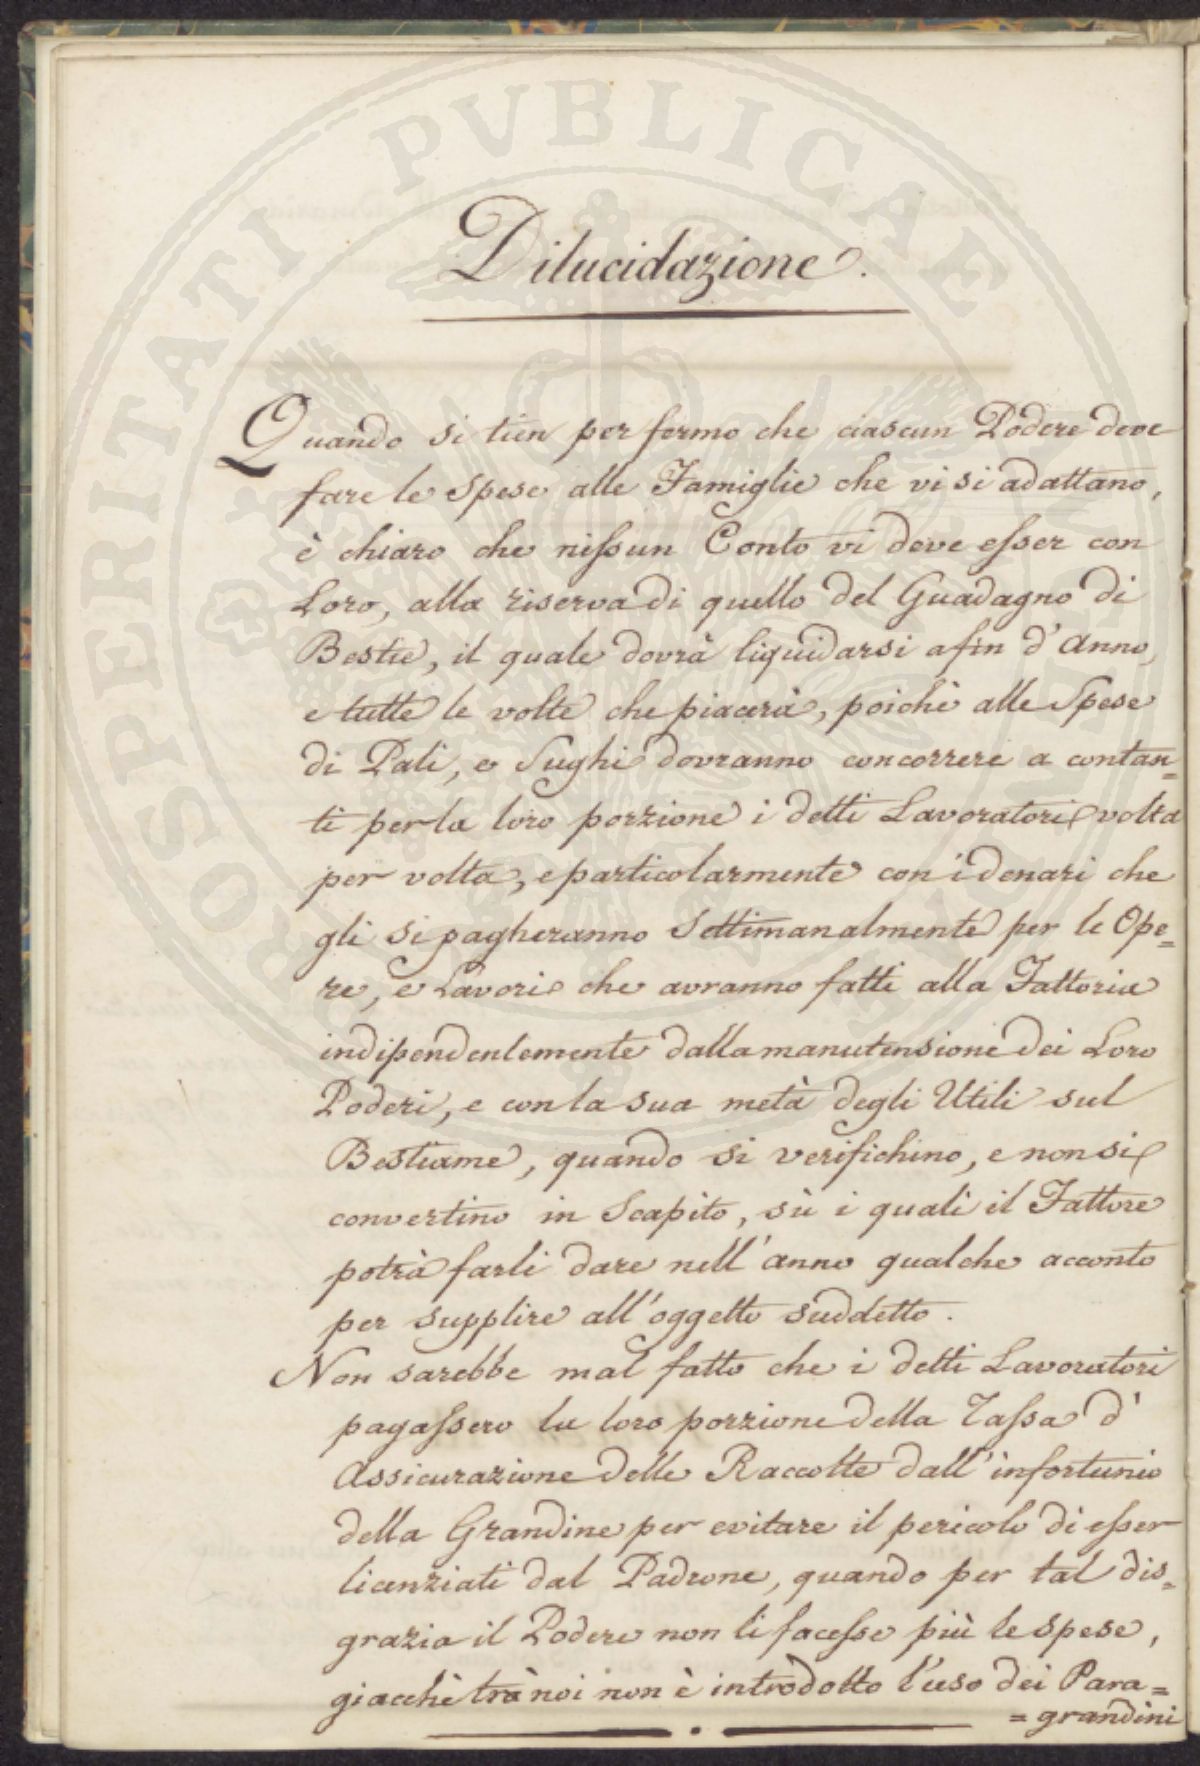 PROSPERITATI PVBLICAE AVGENDAE
Dilucidazione.
Quando si tien per fermo che ciascun Podere deve
fare le Spese alle Famiglie che vi si adattano,
è chiaro che nissun Conto vi deve esser con
Loro, alla riserva di quello del Guadagno di
Bestie, il quale dovrà liquidarsi a fin d'Anno,
e tutte le volte che piacerà, poichè alle Spese
di Pali, e Sughi dovranno concorrere a contan=
ti per la loro porzione i detti Lavoratori volta
per volta, e particolarmente con i denari che
gli si pagheranno Settimanalmente per le Ope=
re, e Lavori che avranno fatti alla Fattoria
indipendentemente dalla manutensione dei Loro
Poderi, e con la sua metà degli Utili sul
Bestiame, quando si verifichino, e non si
convertino in Scapito, sù i quali il Fattore
potrà farli dare nell'anno qualche acconto
per supplire all'oggetto suddetto.
Non sarebbe mal fatto che i detti Lavoratori
pagassero la loro porzione della Tassa d'
Assicurazione delle Raccolte dall'infortunio
della Grandine per evitare il pericolo di esser
licenziati dal Padrone, quando per tal dis=
grazia il Podere non li facesse più le spese,
giacchè trà noi non è introdotto l'uso dei Para=
=grandini